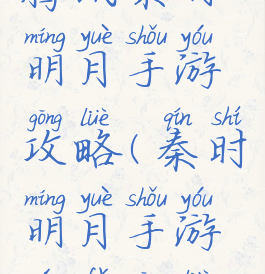 míng yuè shǒu yóu
明月手游
gōng lüè qín shí
攻略(秦时
míng yuè shǒu yóu
明月手游